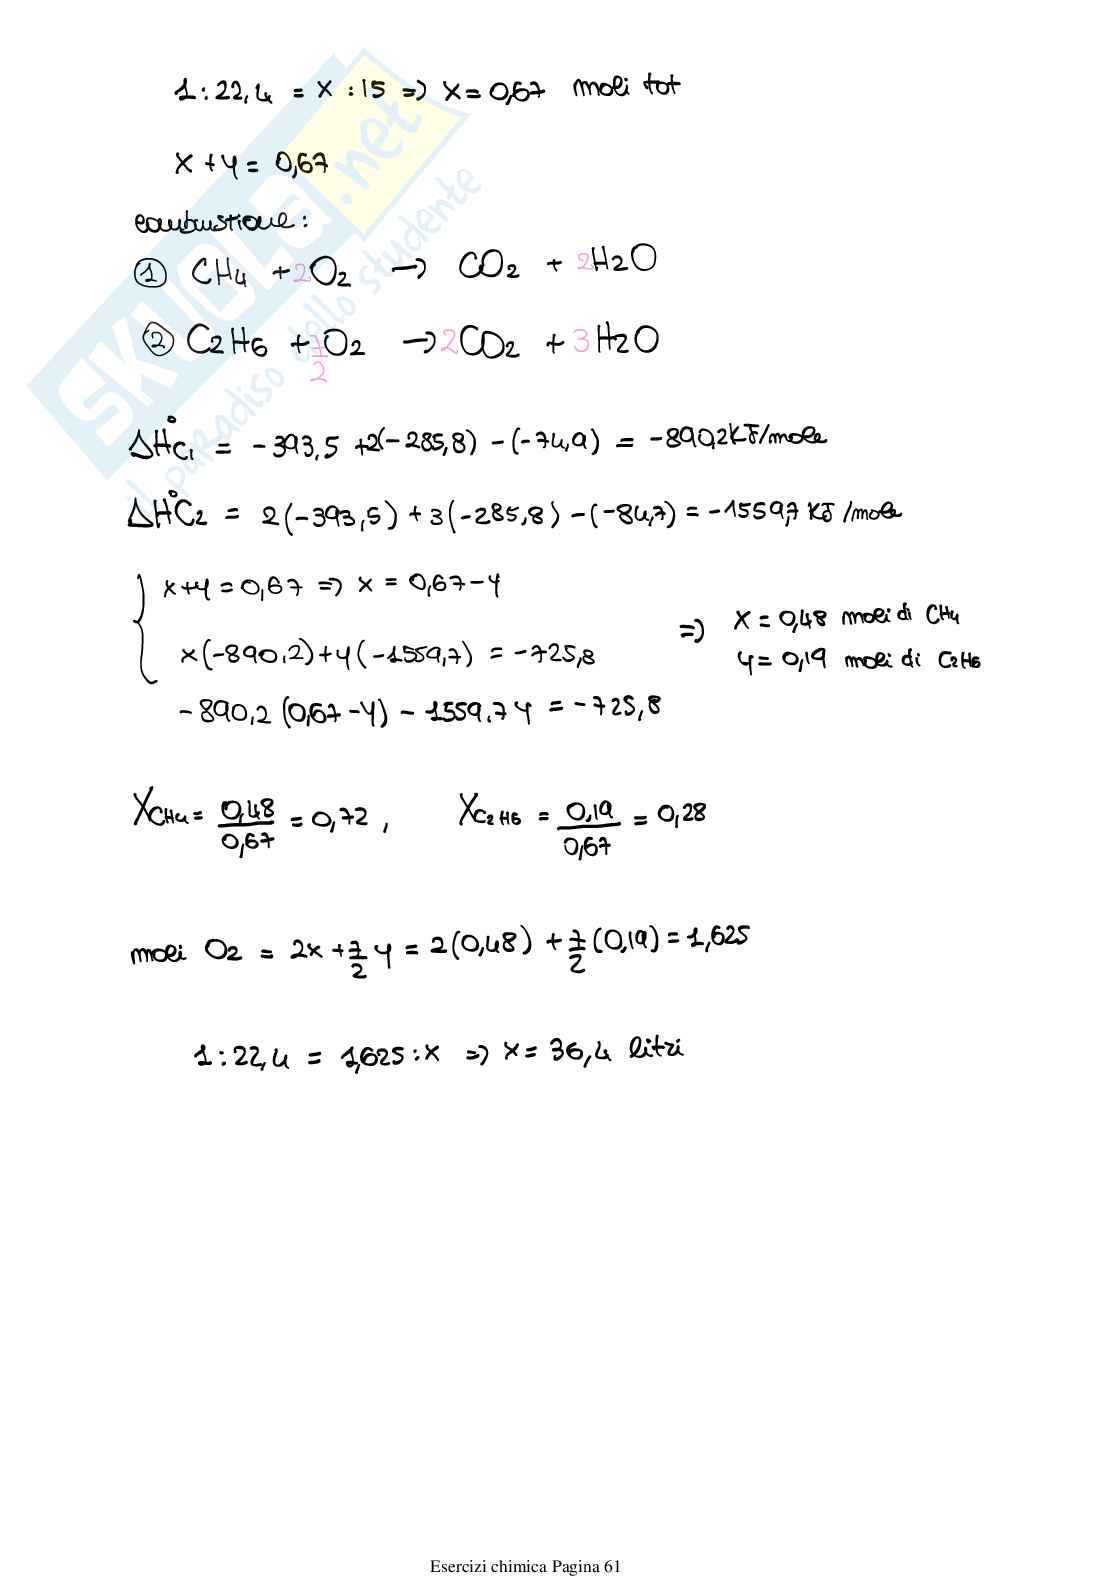 1 : 22,4 = x : 15 => x = 0,67 moli tot
x + y = 0,67
combustione:
① CH4 + 2O2 → CO2 + 2H2O
② C2H6 + 7/2 O2 → 2CO2 + 3H2O
ΔH°C1 = -393,5 + 2(-285,8) - (-74,9) = -890,2 KJ/mole
ΔH°C2 = 2(-393,5) + 3(-285,8) - (-84,7) = -1559,7 KJ/mole
x+y = 0,67 => x = 0,67 - y
x(-890,2) + y(-1559,7) = -725,8
=> x = 0,48 moli di CH4
y = 0,19 moli di C2H6
-890,2 (0,67 - y) - 1559,7 y = -725,8
XCH4 = 0,48/0,67 = 0,72 , XC2H6 = 0,19/0,67 = 0,28
moli O2 = 2x + 7/2 y = 2(0,48) + 7/2 (0,19) = 1,625
1 : 22,4 = 1,625 : x => x = 36,4 litri
SKUOLA.net
il paradiso dello studente
Esercizi chimica Pagina 61